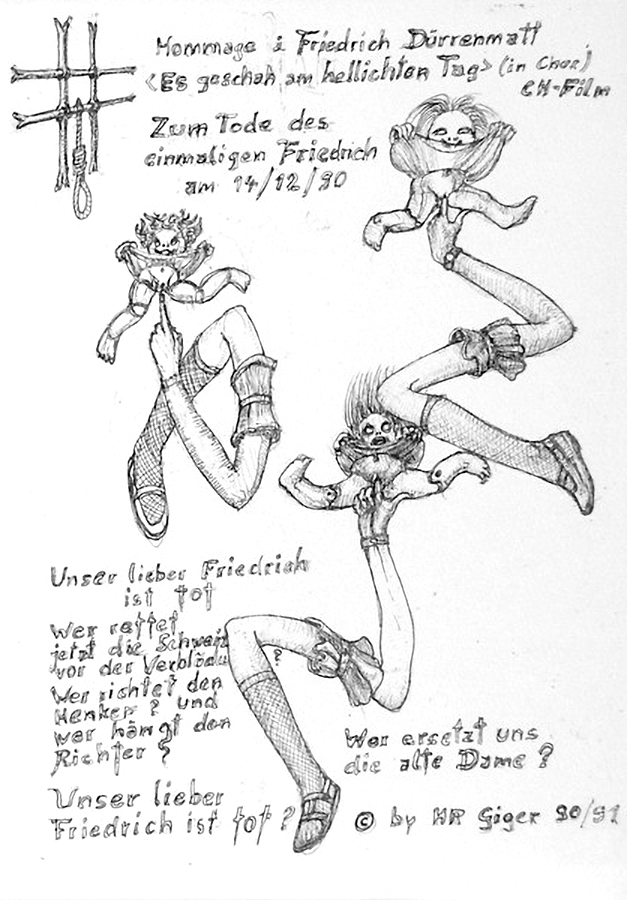 Hommage à Friedrich Dürrenmatt
<Es geschah am hellichten Tag> (in Chur)
CH-Film
Zum Tode des
einmaligen Friedrich
am 14/12/90
Unser lieber Friedrich
ist tot
Wer rettet
jetzt die Schweiz
vor der Verblödu
Wer richtet den
Henker? und
wer hängt den
Richter?
Unser lieber
Friedrich ist tot?
Wer ersetzt uns
die alte Dame?
© by HR Giger 90/91